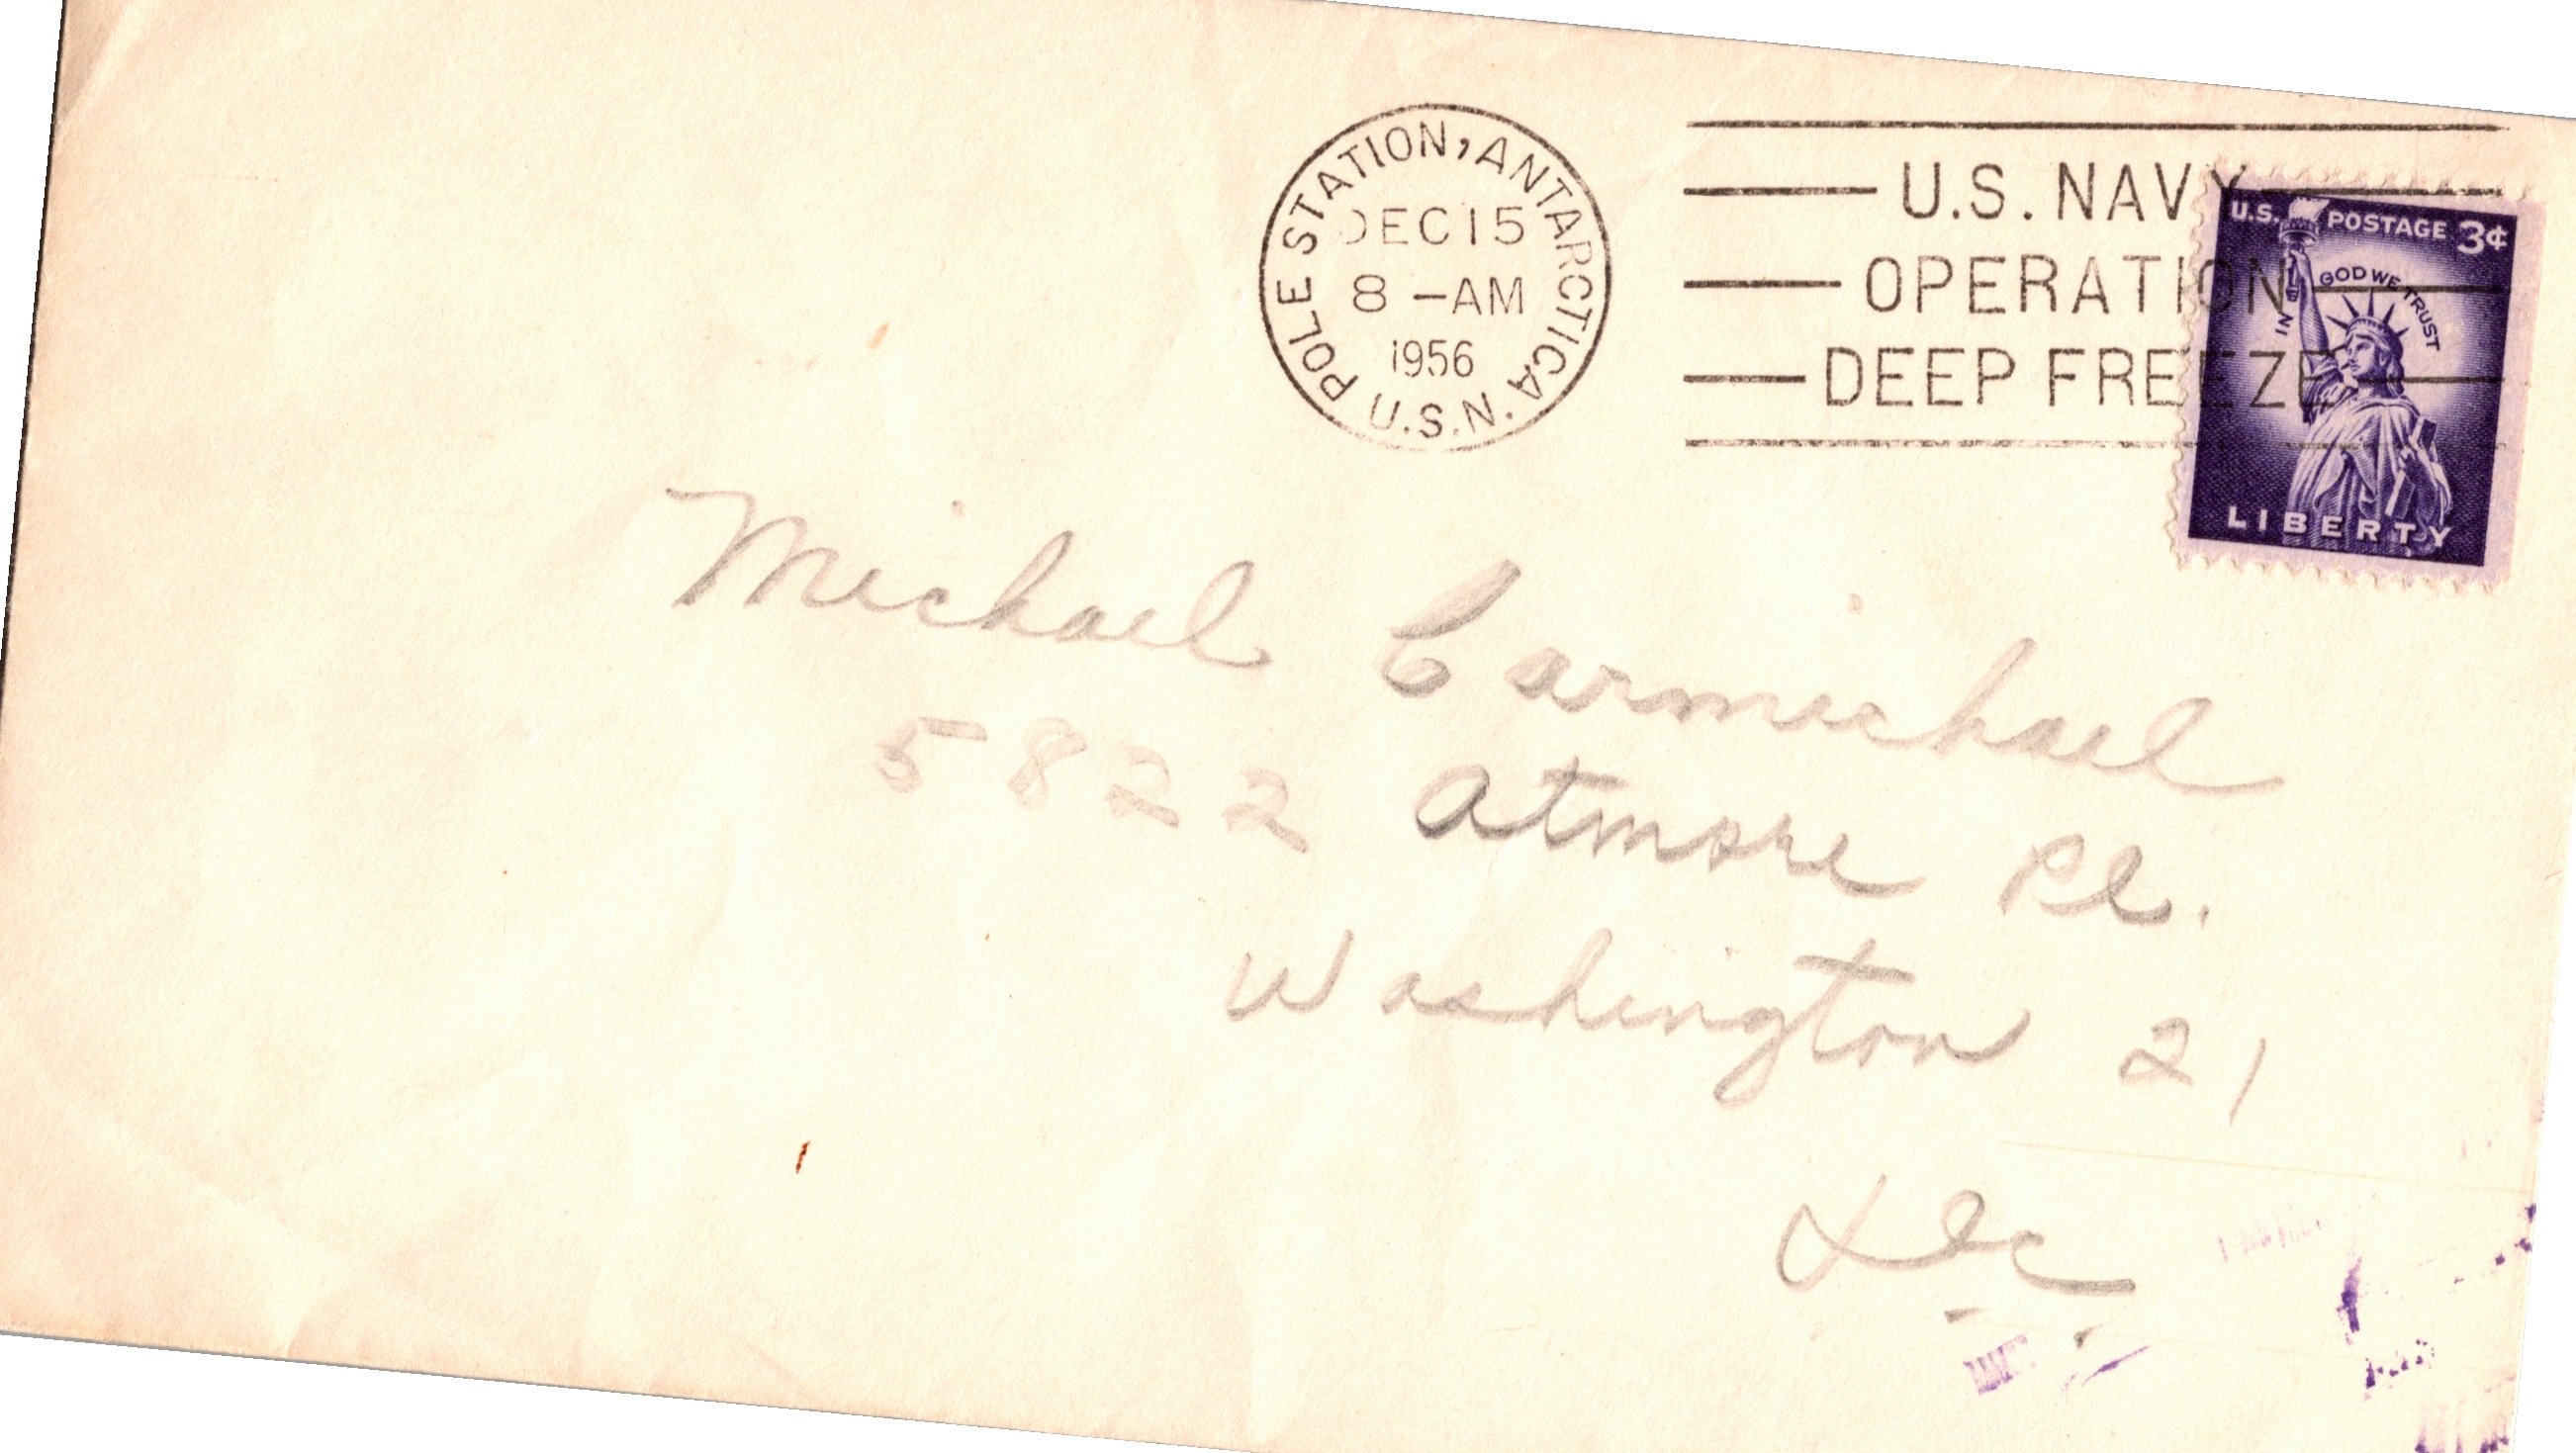 POLE STATION, ANTARCTICA. U.S.N.
DEC 15
8 -AM
1956
U.S. NAVY
OPERATION
DEEP FREEZE
U.S. POSTAGE 3¢
IN GOD WE TRUST
LIBERTY
Michael Carmichael
5822 Atmore Pl.
Washington 21
D.C.